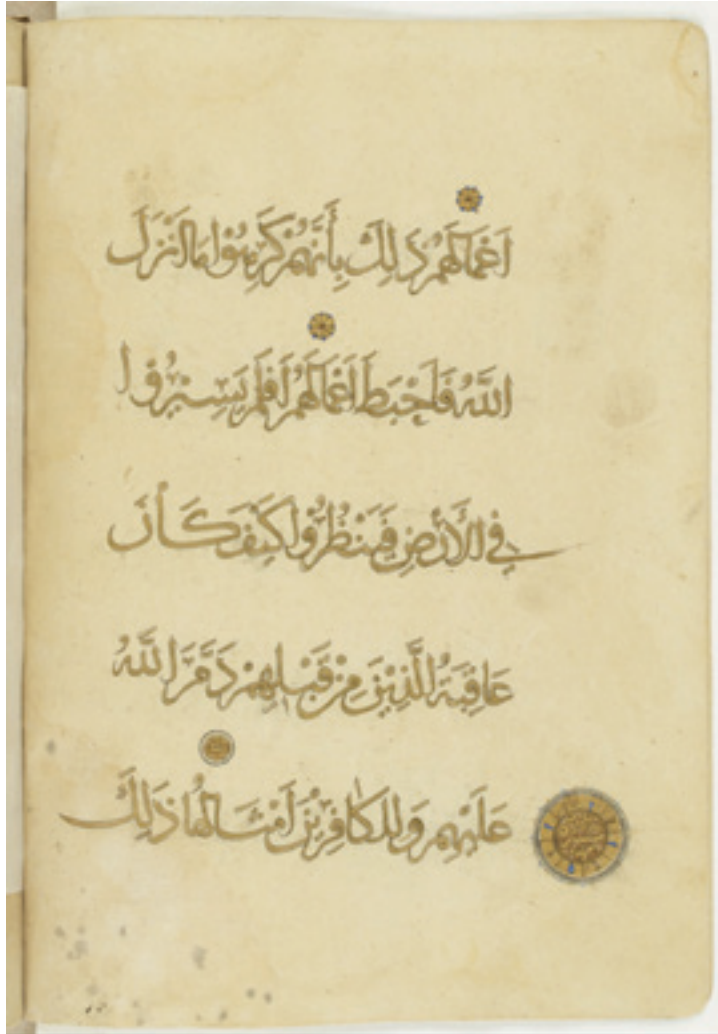 أَعْمَالَهُمْ ذَلِكَ بِأَنَّهُمْ كَرِهُوا مَا أَنْزَلَ
اللَّهُ فَأَحْبَطَ أَعْمَالَهُمْ أَفَلَمْ يَسِيرُوا
فِي الْأَرْضِ فَيَنْظُرُوا كَيْفَ كَانَ
عَاقِبَةُ الَّذِينَ مِنْ قَبْلِهِمْ دَمَّرَ اللَّهُ
عَلَيْهِمْ وَلِلْكَافِرِينَ أَمْثَالُهَا ذَلِكَ